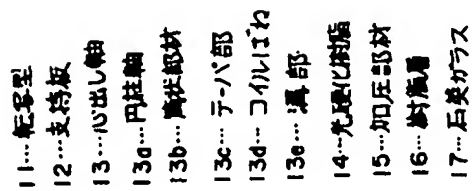 11…転写型
12…支持板
13…心出し軸
13a…円柱軸
13b…弾性部材
13c…テーパ部
13d…コイルばね
13e…溝部
14…光硬化樹脂
15…加圧部材
16…樹脂層
17…石英ガラス